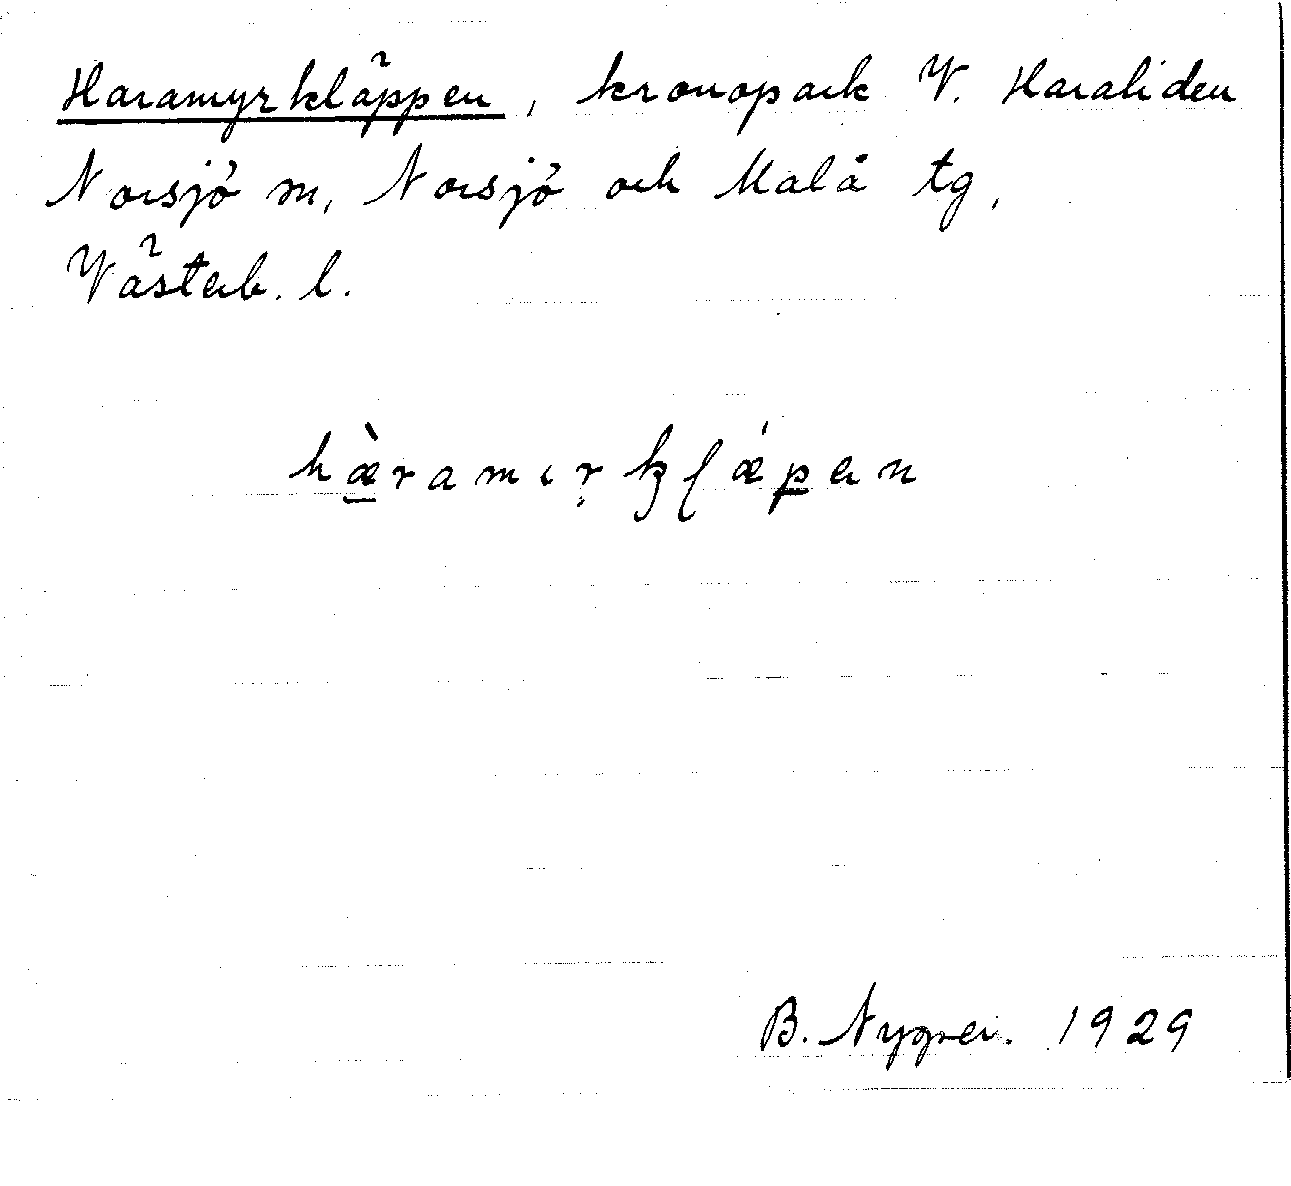 Haramyrkläppen, kronopark V. Haraliden
Norsjö sn, Norsjö och Malå tg,
Västerb. l.
hæ̀ramırkʃǽpen
B. Nygren. 1929